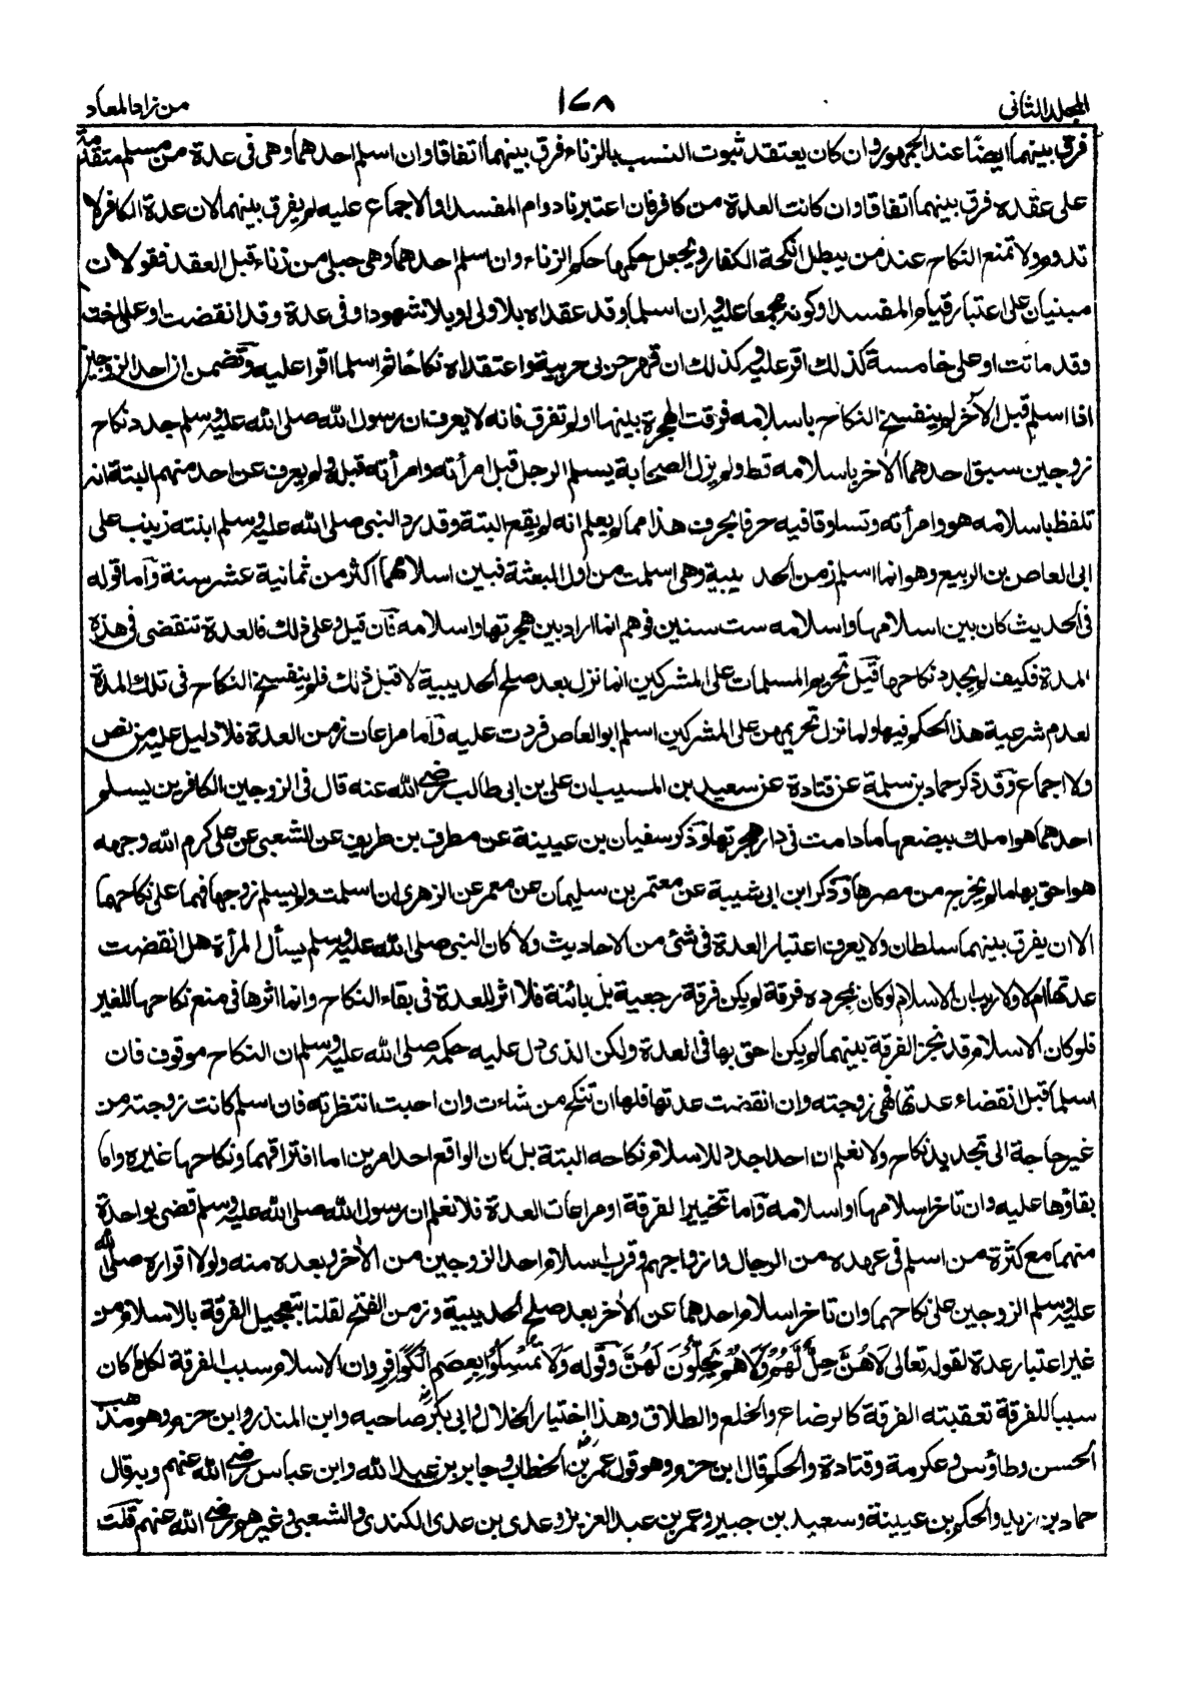 المجلد الثانى ١٧٨ من زاد المعاد
فرق بينهما ايضًا عند الجمهور وان كان يعتقد ثبوت النسب بالزناء فرق بينهما اتفاقا وان اسلم احدهما وهى فى عدة من مسلم متقدمة
على عقده فرق بينهما اتفاقا وان كانت العدة من كافر فان اعتبرنا دوام المفسد او الاجماع عليه لم يفرق بينهما لان عدة الكافر لا
تدوم ولا تمنع النكاح عند من يبطل انكحة الكفار ويجعل حكمها حكم الزناء وان اسلم احدهما وهى حبلى من زناء قبل العقد فقولان
مبنيان على اعتبار قيام المفسد او كونه مجمعا عليه وان اسلما وقد عقداه بلا ولى او بلا شهود او فى عدة وقد انقضت او على اخت
وقد ماتت او على خامسة كذلك اقر عليه وكذلك ان قهر حربى حربية واعتقداه نكاحا ثم اسلما اقرا عليه وتضمن ان احد الزوجين
اذا اسلم قبل الآخر لم ينفسخ النكاح باسلامه فرقت الهجرة بينهما او لم تفرق فانه لا يعرف ان رسول الله صلى الله عليه وسلم جدد نكاح
زوجين سبق احدهما الآخر باسلامه قط ولم يزل الصحابة يسلم الرجل قبل امرأته وامرأته قبله ولم يعرف عن احد منهم البتة انه
تلفظ باسلامه هو وامرأته وتساوقا فيه حرفا بحرف هذا مما لم يعلم انه لم يقع البتة وقد رد النبى صلى الله عليه وسلم ابنته زينب على
ابى العاص بن الربيع وهو انما اسلم زمن الحديبية وهى اسلمت من اول البعثة فبين اسلامهما اكثر من ثمانية عشر سنة وأما قوله
فى الحديث كان بين اسلامها واسلامه ست سنين فوهم انما اراد بين هجرتها واسلامه فان قيل وعلى ذلك فالعدة تنقضى فى هذه
المدة فكيف لم يجدد نكاحها قيل تحريم المسلمات على المشركين انما نزل بعد صلح الحديبية لا قبل ذلك فلم ينفسخ النكاح فى تلك المدة
لعدم شرعية هذا الحكم فيها ولما نزل تحريمهن على المشركين اسلم ابو العاص فردت عليه وأما مراعات زمن العدة فلا دليل عليه من نص
ولا اجماع وقد ذكر حماد بن سلمة عن قتادة عن سعيد بن المسيب ان على بن ابى طالب رضى الله عنه قال فى الزوجين الكافرين يسلم
احدهما هو املك ببضعها ما دامت فى دار هجرتها وذكر سفيان بن عيينة عن مطرف بن طريف عن الشعبى عن على كرم الله وجهه
هو احق بها ما لم يخرج من مصرها وذكر ابن ابى شيبة عن معتمر بن سليمان عن معمر عن الزهرى ان اسلمت ولم يسلم زوجها فهما على نكاحهما
الا ان يفرق بينهما سلطان ولا يعرف اعتبار العدة فى شئ من الاحاديث ولا كان النبى صلى الله عليه وسلم يسأل المرأة هل انقضت
عدتها ام لا ولا ريب ان الاسلام لو كان بمجرده فرقة لم يكن فرقة رجعية بل بائنة فلا اثر للعدة فى بقاء النكاح وانما اثرها فى منع نكاحها للغير
فلو كان الاسلام قد نجز الفرقة بينهما لم يكن احق بها فى العدة ولكن الذى دل عليه حكمه صلى الله عليه وسلم ان النكاح موقوف فان
اسلما قبل انقضاء عدتها فهى زوجته وان انقضت عدتها فلها ان تنكح من شاءت وان احبت انتظرته فان اسلم كانت زوجته من
غير حاجة الى تجديد نكاح ولا نعلم ان احدا جدد للاسلام نكاحه البتة بل كان الواقع احد امرين اما افتراقهما ونكاحها غيره واما
بقاؤها عليه وان تاخر اسلامها او اسلامه وأما تخيير الفرقة او مراعات العدة فلا نعلم ان رسول الله صلى الله عليه وسلم قضى بواحدة
منهما مع كثرة من اسلم فى عهده من الرجال وازواجهم وقرب اسلام احد الزوجين من الآخر وبعده منه ولولا اقراره صلى الله
عليه وسلم الزوجين على نكاحهما وان تاخر اسلام احدهما عن الآخر بعد صلح الحديبية وزمن الفتح لقلنا بتعجيل الفرقة بالاسلام من
غير اعتبار عدة لقوله تعالى لَا هُنَّ حِلٌّ لَّهُمْ وَلَا هُمْ يَحِلُّونَ لَهُنَّ وقوله وَلَا تُمْسِكُوا بِعِصَمِ الْكَوَافِرِ وان الاسلام سبب الفرقة لكل ما كان
سببا للفرقة تعقبته الفرقة كالرضاع والخلع والطلاق وهذا اختيار الخلال وابى بكر صاحبه وابن المنذر وابن حزم وهو مذهب
الحسن وطاؤس وعكرمة وقتادة والحكم قال ابن حزم وهو قول عمر بن الخطاب وجابر بن عبد الله وابن عباس رضى الله عنهم وبه قال
حماد بن زيد والحكم بن عيينة وسعيد بن جبير وعمر بن عبد العزيز وعدى بن عدى الكندى والشعبى وغيرهم رضى الله عنهم قلت